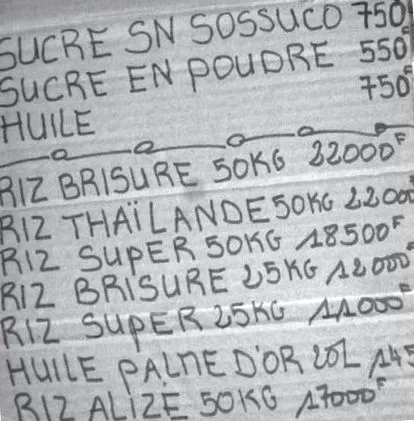 SUCRE SN SOSSUCO 750F
SUCRE EN POUDRE 550F
HUILE 750F
RIZ BRISURE 50KG 22000F
RIZ THAÏLANDE 50KG 2200
RIZ SUPER 50KG 18500F
RIZ BRISURE 25KG 12000F
RIZ SUPER 25KG 11000F
HUILE PALME D'OR 20L 145
RIZ ALIZÉ 50KG 17000F